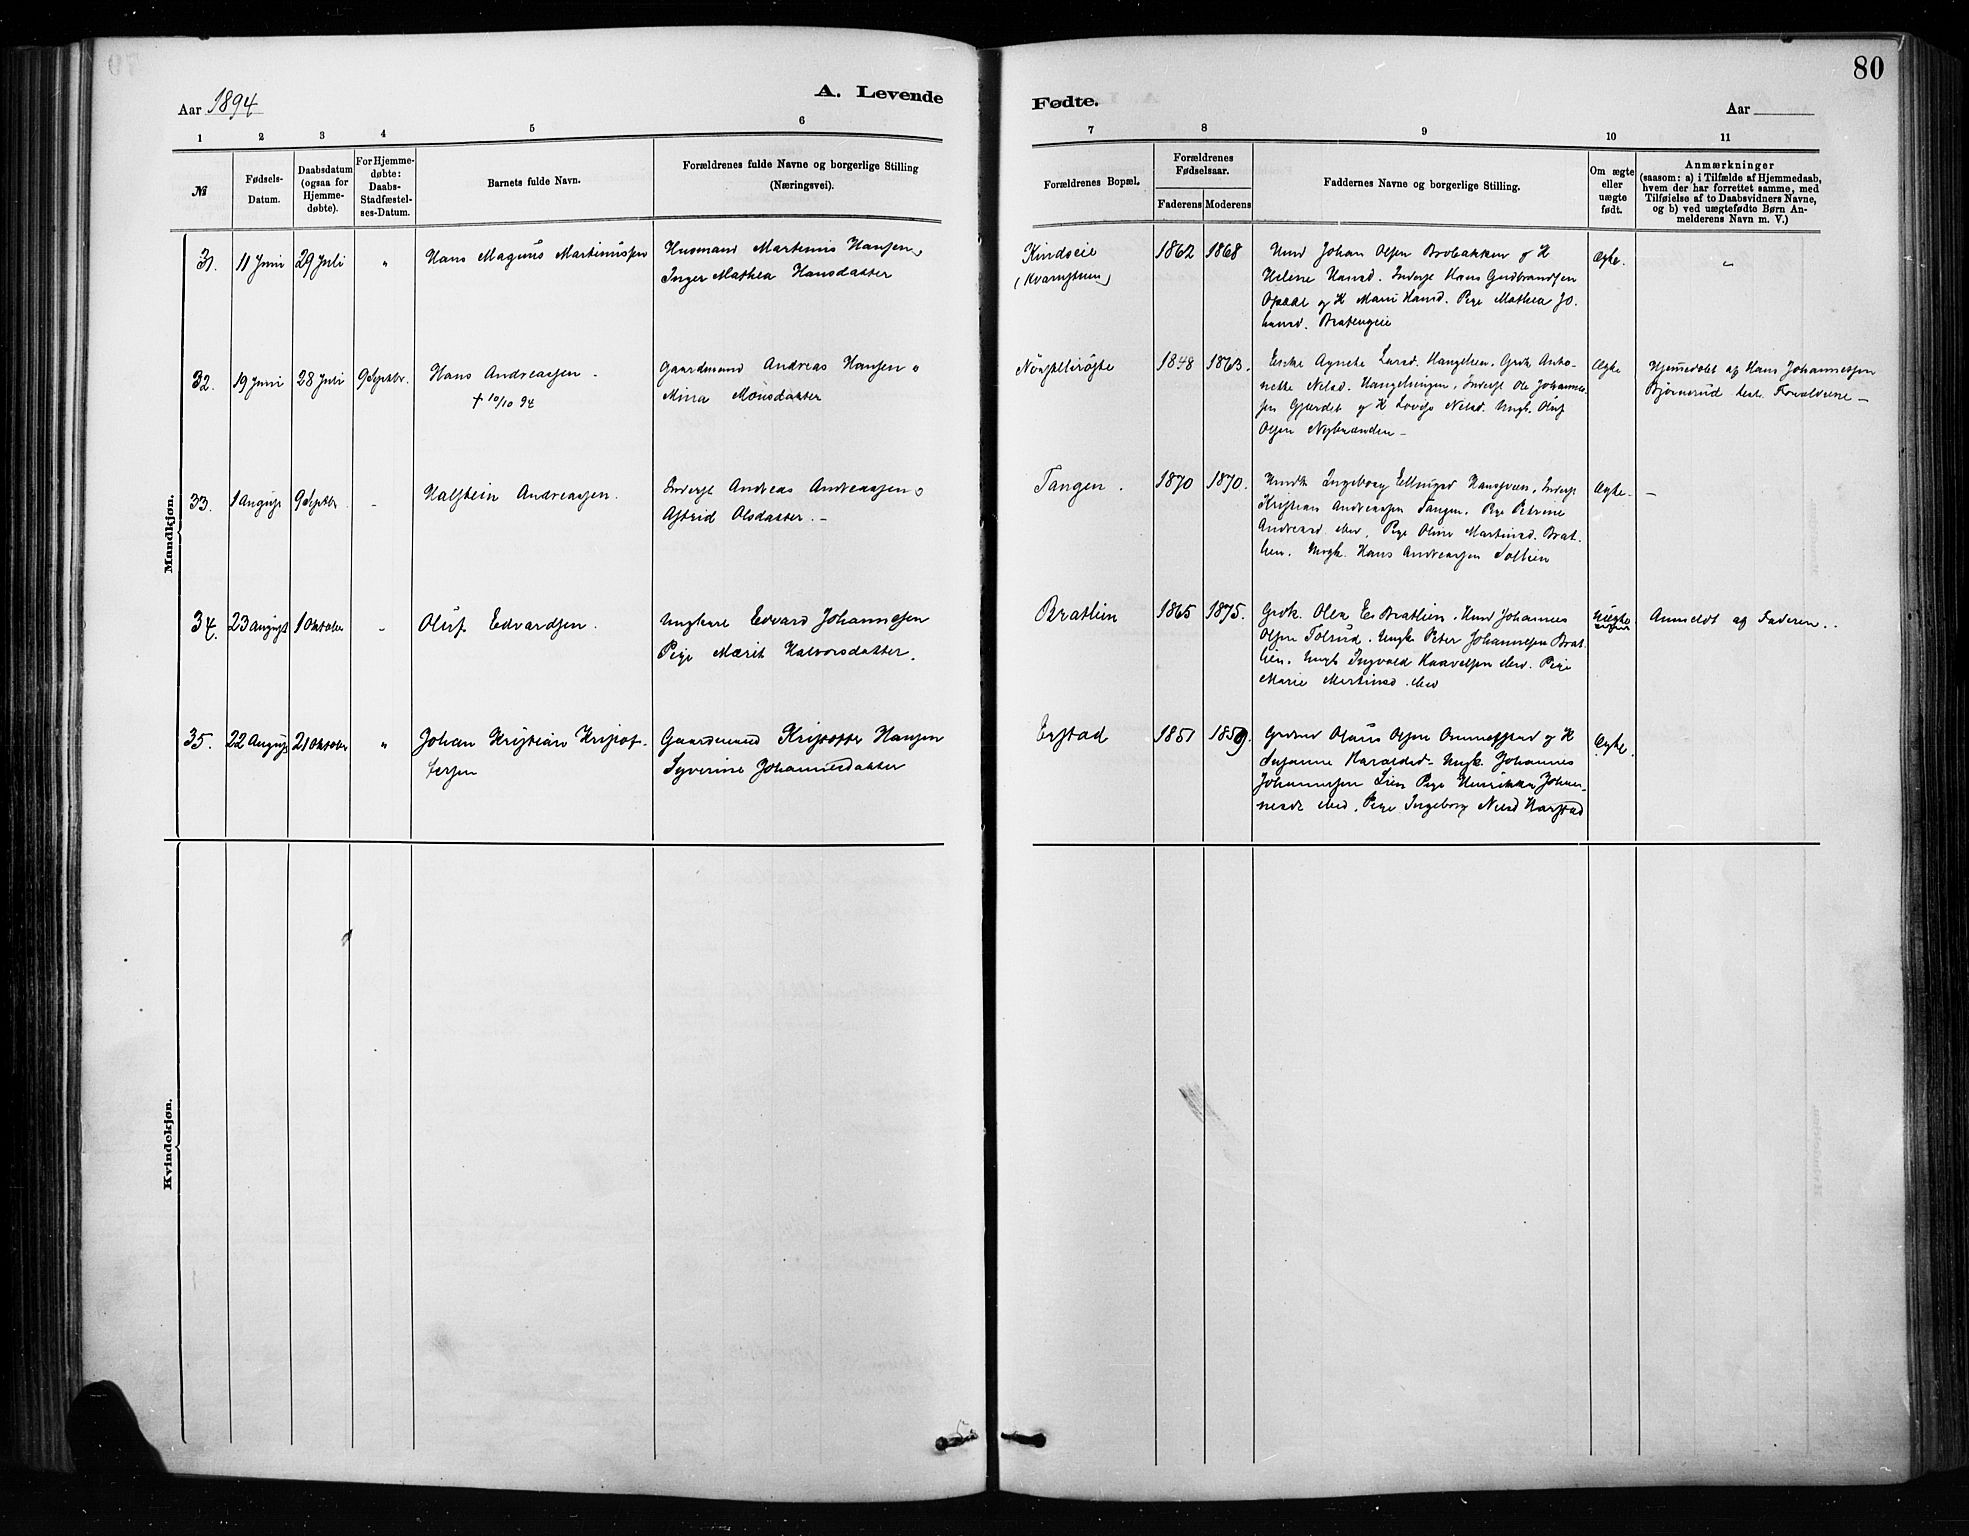 80
Aar 1894
A. Levende
Fødte.
Aar
1 2 3 4 5 6 7 8 9 10 11
№
Fødsels-
Datum.
Daabsdatum
(ogsaa for
Hjemme-
døbte).
For Hjemme-
døbte:
Daabs-
Stadfæstel-
ses-Datum.
Barnets fulde Navn.
Forældrenes fulde Navne og borgerlige Stilling
(Næringsvei).
Forældrenes Bopæl.
Forældrenes
Fødselsaar.
Faderens Moderens
Faddernes Navne og borgerlige Stilling.
Om ægte
eller
uægte
født.
Anmærkninger
(saasom: a) i Tilfælde af Hjemmedaab,
hvem der har forrettet samme, med
Tilføielse af to Daabsvidners Navne,
og b) ved uægtefødte Børn An-
melderens Navn m. V.)
Mandkjøn.
31. 11 Juni 29 Juli " Hans Magnus Martinussen
Husmand Martinus Hansen
Inger Mathea Hansdatter
Kindseie
1862 1868
Husm Johan Olsen Brobakken og K
Helene Hansd. Inderst Hans Gudbrandsen
Opsal og K Mari Hansd. Pige Mathea Jo-
hansd. Bratengeie
Ægte. "
32. 19 Juni 28 Juli 9 Septbr. Hans Andreassen.
† 10/10 94
Gaardmand Andreas Hansen
Mina Monsdatter
1848 1863.
Enke Agnethe Larsd. Gmk Antonette Nelsd. Inderst Ole Johannes-
sen Gjærdet og K Lovise Nelsd. Ungk. Oluf
Olsen Nybrænden –
Ægte
Hjemmedøbt af Hans Johannessen
Bjørnerud test. Forældrene –
33. 1 August 9 Septbr. – Halstein Andreassen.
Inderst Andreas Andreassen
Astrid Olsdatter. –
Tangen.
1870 1870.
Husmk Ingeborg Ellingsd Hansveen. Inderst
Kristian Andreassen Tangen. Pige Petrine
Andreasd ibid. Pige Oline Martinsd. Brat-
lien. Ungk. Hans Andreassen Sollien
Ægte. –
34. 23 August 1 Oktober – Oluf Edvardsen.
Ungkarl Edvard Johannesen
Pige Marit Halvorsdatter.
Bratlien
1865 1875.
Gmk. Olea E. Bratlien. Husm Johannes
Olsen Tolsrud. Ungk Peter Johannesen Brat-
lien. Ungk Ingvald Haavelsen ibid. Pige
Marie Martinsd. ibid
Uægte
Anmeldt af Faderen.
35. 22 August 21 Oktober " Johan Kristian Kristof-
fersen
Gaardmand Kristoffer Hansen
Syverine Johannesdatter
Evstad
1851 1859.
Gmd Olaus Olsen Ommestad og K
Susanne Haraldsd. Ungk. Johannes
Johannesen Lien Pige Henrikka Johan-
nesd ibid. Pige Ingeborg Nilsd Harstad
Ægte.
Kvindekjøn.